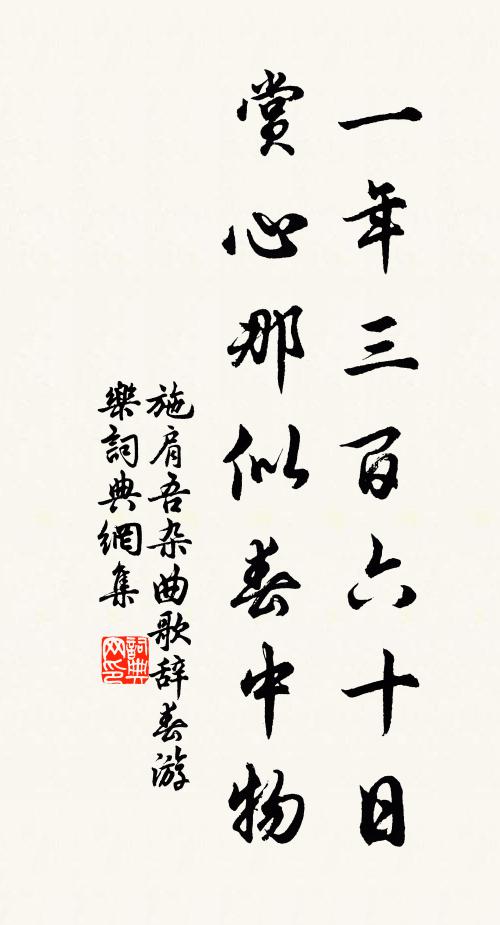 一年三百六十日
赏心那似春中物
施肩吾杂曲歌辞春游
樂詞典網集
詞典
网印